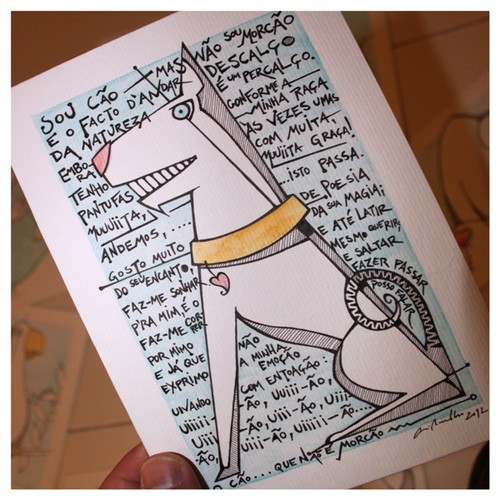 SOU CÃO MAS NÃO SOU MORCÃO
E O FACTO D'ANDAR DESCALÇO
DA NATUREZA É UM PERCALÇO.
EMBORA CONFORME A
TENHO MINHA RAÇA
PANTUFAS ÀS VEZES UMAS
MUUUIITA, COM MUITA.
ANDEMOS,.... MUUIITA GRAÇA!
GOSTO MUITO ...ISTO PASSA.
DO SEU ENCANTO, DE POESIA
FAZ-ME SONHAR DA SUA MAGIA!
P'RA MIM, É O E ATÉ LATIR
FAZ-ME CORRER MESMO QUERIR,
POR MIMO E SALTAR
E JÁ QUE FAZER PASSAR
EXPRIMO NÃO POSSO FALAR
UIVANDO A MINHA EMOÇÃO
UIIIII- COM ENTOAÇÃO.
-ÃO, UIIII-ÃO, UIIII-
-ÃO, UIIII-ÃO, UIIII-
-ÃO, UIIII-ÃO, UIIIII-ÃO...
O CÃO... QUE NÃO É MORCÃO
2012